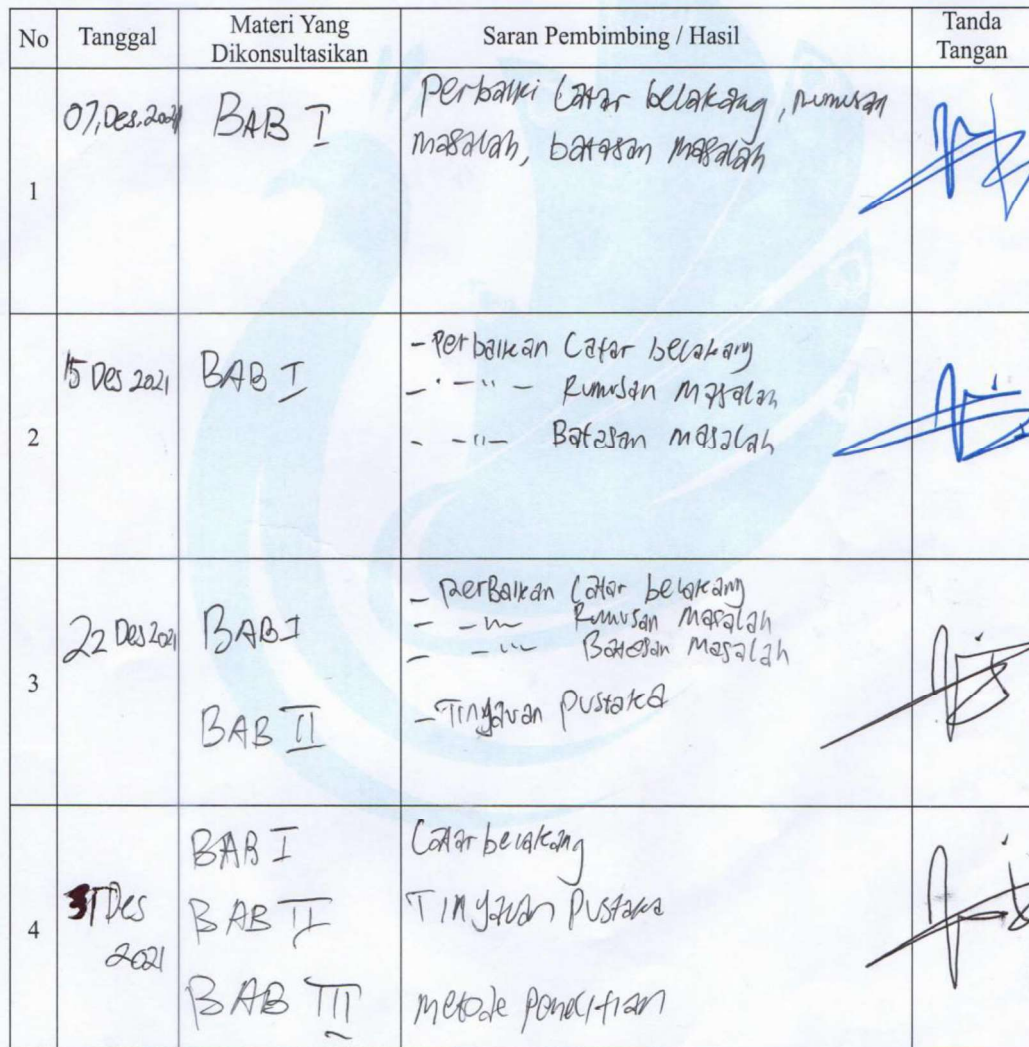 No Tanggal Materi Yang Dikonsultasikan Saran Pembimbing / Hasil Tanda Tangan
1 07, Des, 2021 BAB I Perbaiki Latar belakang, rumusan
masalah, batasan masalah
2 15 Des 2021 BAB I - Perbaikan Latar belakang
- - " - Rumusan masalah
- - " - Batasan masalah
3 22 Des 2021 BAB I - PerBaikan Latar belakang
- - " - Rumusan Masalah
- - " - Batasan Masalah
BAB II - Tinjauan pustaka
4 31 Des 2021 BAB I Latar belakang
BAB II Tinjauan Pustaka
BAB III metode Penelitian